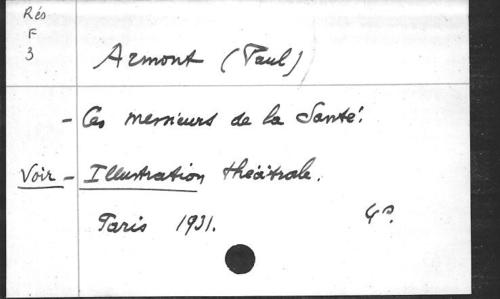 Rés
F
3
Armont (Paul)
- Ces messieurs de la Santé.
Voir - Illustration théâtrale.
Paris 1931. 4º.